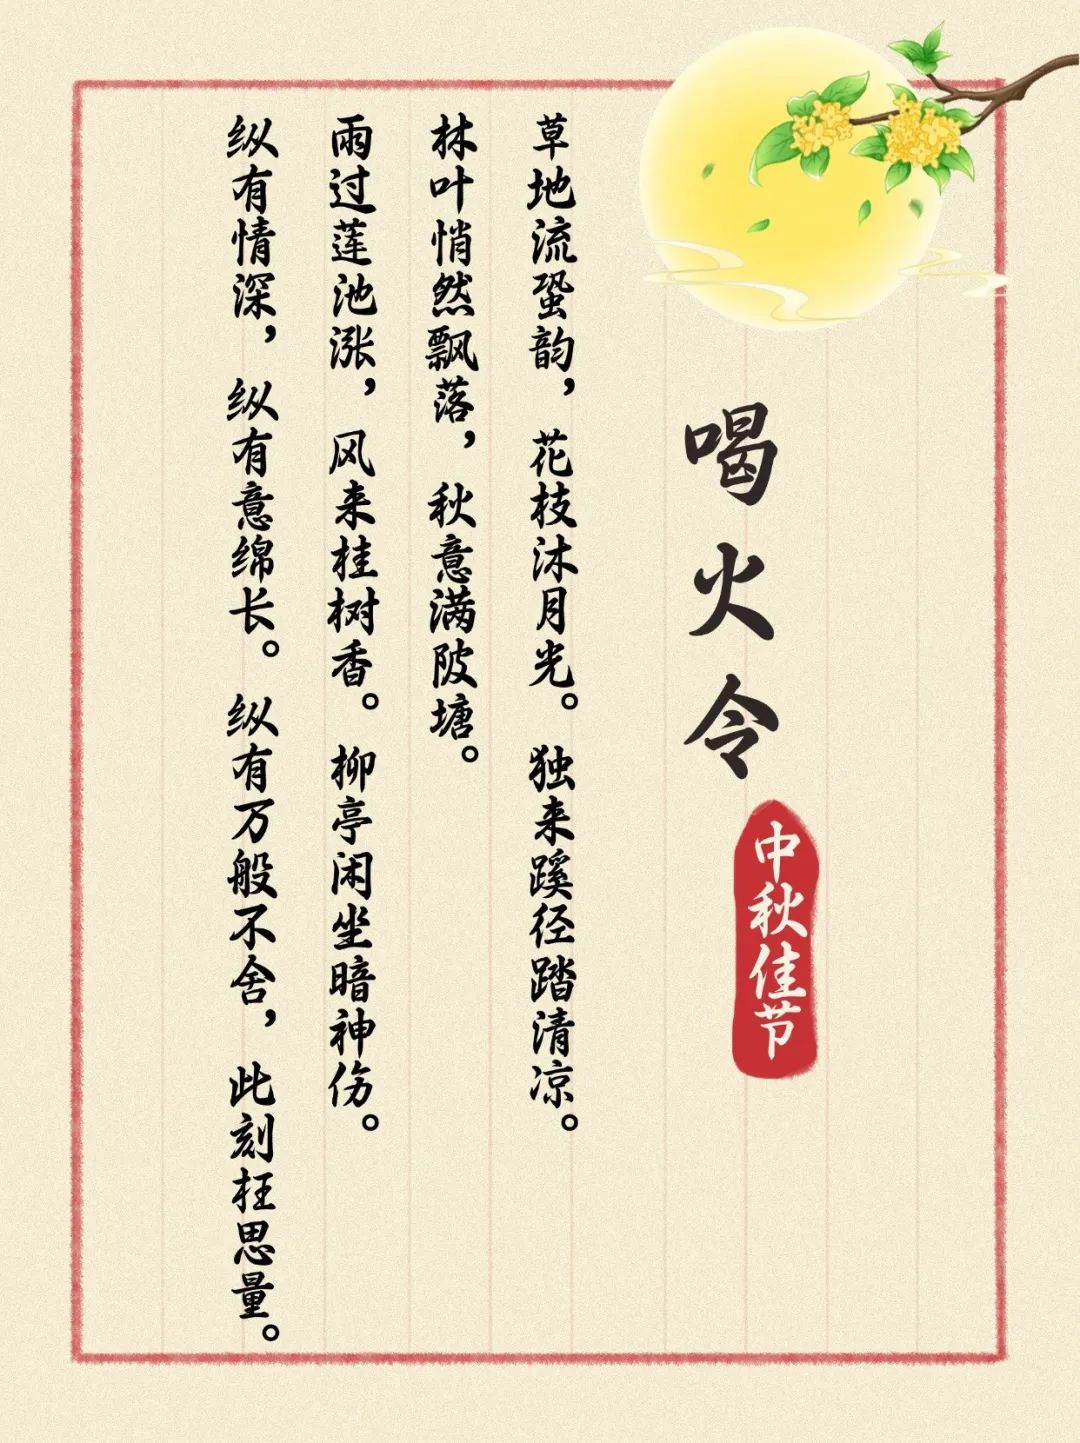 喝火令
中秋佳节
草地流蛩韵，花枝沐月光。独来蹊径踏清凉。
林叶悄然飘落，秋意满陂塘。
雨过莲池涨，风来桂树香。柳亭闲坐暗神伤。
纵有情深，纵有意绵长。纵有万般不舍，此刻枉思量。